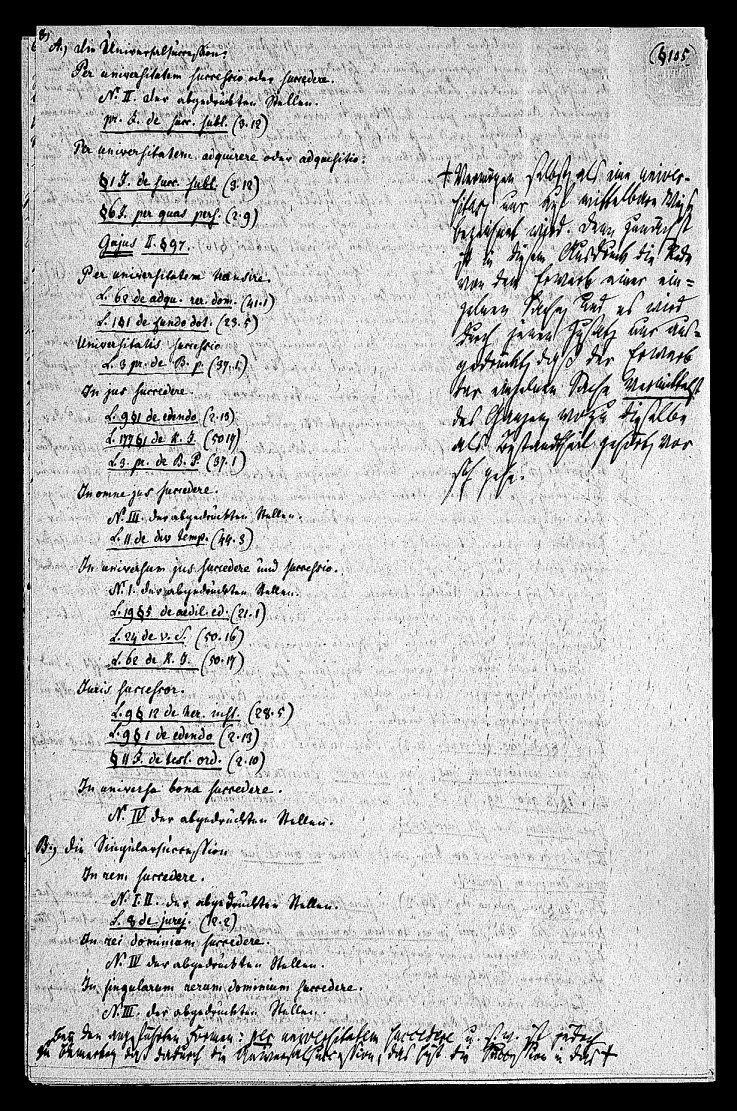 (§105)
A.) die Universalsuccession:
Per universitatem successio oder succedere.
N. II. der abgedruckten Stellen.
pr. J. de succ. subl. (3.12)
Per universitatem adquirere oder adquisitio:
§1 J. de succ. subl. (3.12)
§6 J. per quas pers. (2.9)
Gajus II. §97.
Per universitatem transire.
L. 62 de adqu. rer. dom. (41.1)
L. 1 §1 de fundo dot. (23.5)
Universitatis successio
L. 3 pr. de B. p. (37.1)
In jus succedere.
L. 9 §1 de edendo (2.13)
L. 177 §1 de R. J. (50 17)
L. 3. pr. de B. P. (37.1)
In omne jus succedere.
N. III. der abgedruckten Stellen.
L. 11 de div temp. (44.3)
In universum jus succedere und successio.
N. I. der abgedruckten Stellen.
L. 19 §5 de aedil. ed. (21.1)
L. 24 de v. S. (50.16)
L. 62 de R. J. (50.17)
Juris successor.
L. 9 § 12 de her. inst. (28.5)
L. 9 § 1 de edendo (2.13)
§ 11 J. de test. ord. (2.10)
In universa bona succedere.
N. IV der abgedruckten Stellen.
B.) die Singularsuccession
In rem succedere.
N. I. II. der abgedruckten Stellen.
L. 8 de jurej. (12.2)
In rei dominium succedere.
N. IV der abgedruckten Stellen.
In singularum rerum dominium succedere.
N. III. der abgedruckten Stellen.
Bey den angeführten Formen: per universitatem succedere u. s. w. ist jedoch
zu bemerken daß dadurch die Universalsuccession, das heißt die Succession in das +
+ Vermögen selbst als eine univer-
sitas, nur auf mittelbare Weise
bezeichnet wird. Denn zunächst
ist in diesem Ausdruck die Rede
von dem Erwerb einer ein-
zelnen Sache, und es wird
durch jenen Zusatz nur aus-
gedrückt daß der Erwerb
der einzelnen Sache vermittelst
des Ganzen, wozu dieselbe
als Bestandtheil gehört, vor
sich gehe.